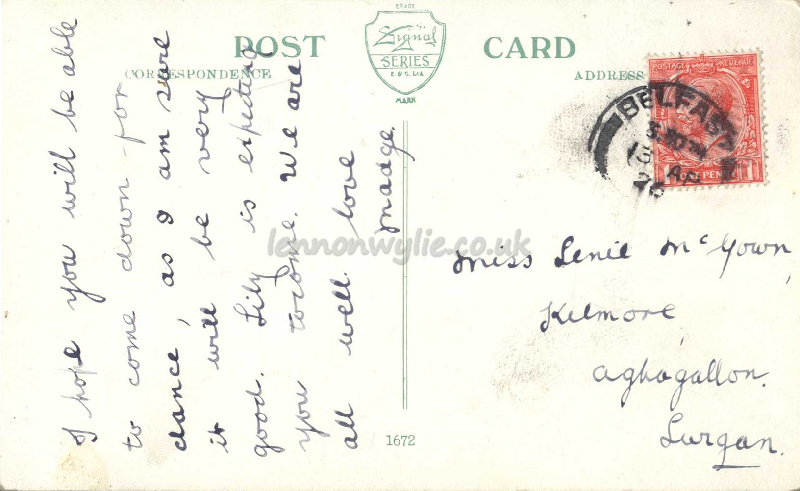 TRADE
Signal
SERIES
E & S. Ltd.
MARK
POST CARD
CORRESPONDENCE
ADDRESS
I hope you will be able
to come down for
dance, as I am sure
it will be very
good. Lily is expecting
you to come. We are
all well. love
Madge
POSTAGE REVENUE
ONE PENNY
BELFAST
13 AP
26
Miss Lenie McGown,
Kilmore,
Aghagallon.
Lurgan.
1672
lennonwylie.co.uk